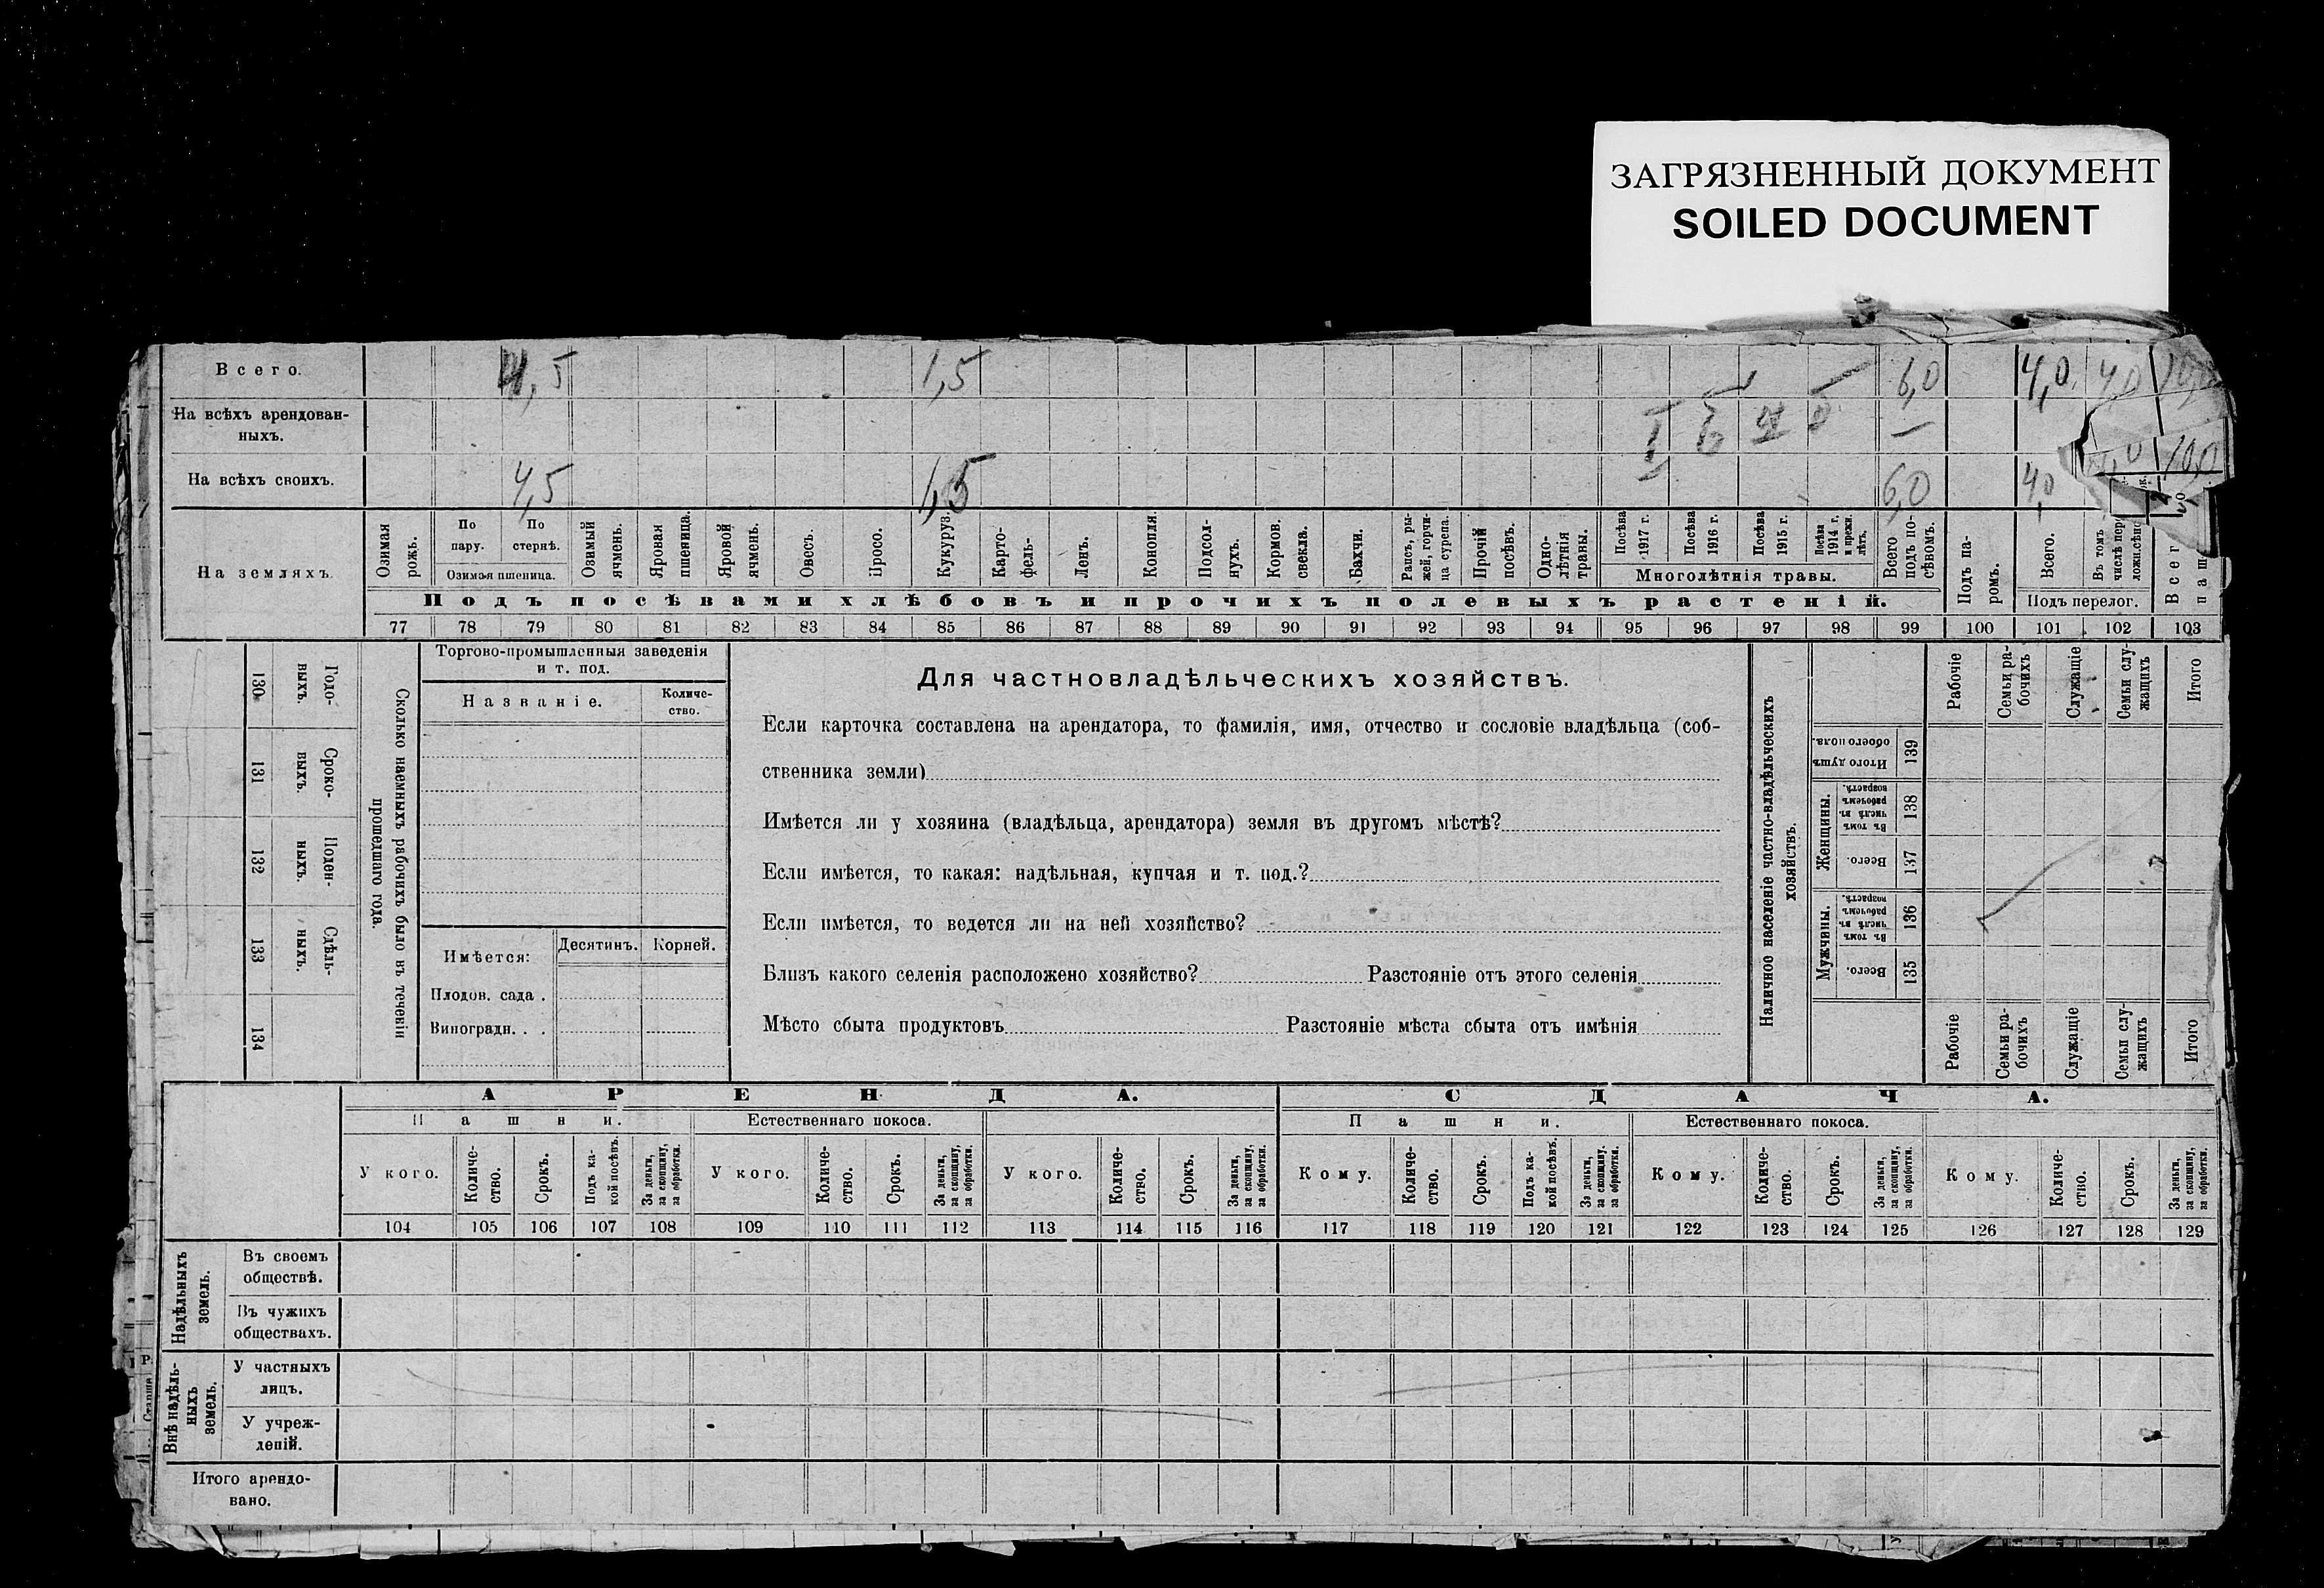 ЗАГРЯЗНЕННЫЙ ДОКУМЕНТ
SOILED DOCUMENT
Всего. 4,5 1,5 6,0 4,0 4,0 10,0
На всѣхъ арендован-
ныхъ. —
На всѣхъ своихъ. 4,5 1,5 6,0 4,0 10,0
На земляхъ.
Озимая рожь.
По пару.
По стернѣ.
Озимая пшеница.
Озимый ячмень.
Яровая пшеница.
Яровой ячмень.
Овесъ.
Просо.
Кукуруз.
Карто-
фель-
Ленъ.
Конопля.
Подсол-
нухъ.
Кормов. свекла.
Бахчи.
Рапсъ, ры-
жей, горчи-
ца сурепа.
Прочій посѣвъ.
Одно-
лѣтнія
травы.
Посѣва 1917 г.
Посѣва 1916 г.
Посѣва 1915 г.
Посѣва 1914 г. и прежн. лѣтъ.
Многолѣтнія травы.
Всего подъ по-
сѣвомъ.
Подъ па-
ромъ.
Всего.
Въ томъ числѣ пер
Подъ перелог.
Подъ посѣвами хлѣбовъ и прочихъ полевыхъ растеній.
77 78 79 80 81 82 83 84 85 86 87 88 89 90 91 92 93 94 95 96 97 98 99 100 101 102 103
Сколько наемныхъ рабочихъ было въ теченіи
прошедшаго года.
Годо-
выхъ. 130
Сроко-
выхъ. 131
Поден-
ныхъ. 132
Сдѣль-
ныхъ. 133
134
Торгово-промышленныя заведенія
и т. под.
Названіе.
Количе-
ство.
Имѣется:
Десятинъ.
Корней.
Плодов. сада .
Виноградн. . .
Для частновладѣльческихъ хозяйствъ.
Если карточка составлена на арендатора, то фамилія, имя, отчество и сословіе владѣльца (соб-
ственника земли)
Имѣется ли у хозяина (владѣльца, арендатора) земля въ другомъ мѣстѣ?
Если имѣется, то какая: надѣльная, купчая и т. под.?
Если имѣется, то ведется ли на ней хозяйство?
Близъ какого селенія расположено хозяйство? Разстояніе отъ этого селенія
Мѣсто сбыта продуктовъ Разстояніе мѣста сбыта отъ имѣнія
Наличное населеніе частно-владѣльческихъ
хозяйствъ.
Рабочіе
Семьи ра-
бочихъ
Служащіе
Семьи слу-
жащихъ
Итого
Итого душъ
обоего пола. 139
Женщины.
Въ томъ
числѣ въ
рабочемъ
возрастѣ. 138
Всего. 137
Мужчины.
Въ томъ
числѣ въ
рабочемъ
возрастѣ. 136
Всего. 135
Рабочіе
Семьи ра-
бочихъ
Служащіе
Семьи слу-
жащихъ
Итого
АРЕНДА. СДАЧА.
Пашни. Естественнаго покоса. Пашни. Естественнаго покоса.
У кого.
Количе-
ство.
Срокъ.
Подъ ка-
кой посѣвъ.
За деньги,
за скопщину,
за обработки.
У кого.
Количе-
ство.
Срокъ.
За деньги,
за скопщину,
за обработки.
У кого.
Количе-
ство.
Срокъ.
За деньги,
за скопщину,
за обработки.
Кому.
Количе-
ство.
Срокъ.
Подъ ка-
кой посѣвъ.
За деньги,
за скопщину.
за обработки.
Кому.
Количе-
ство.
Срокъ.
За деньги,
за скопщину,
за обработки.
Кому.
Количе-
ство.
Срокъ.
За деньги,
за скопщину,
за обработки.
104 105 106 107 108 109 110 111 112 113 114 115 116 117 118 119 120 121 122 123 124 125 126 127 128 129
Надѣльныхъ
земель.
Въ своемъ
обществѣ.
Въ чужихъ
обществахъ.
Внѣ надѣль-
ныхъ
земель.
У частныхъ
лицъ.
У учреж-
деній.
Итого арендо-
вано.